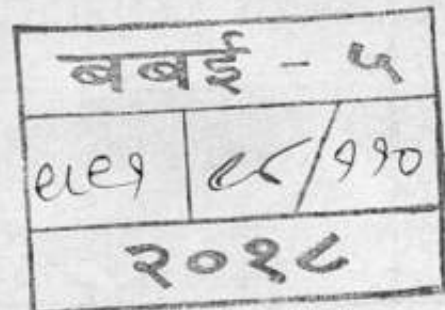 बबई - ५
९८/११०
२०१८